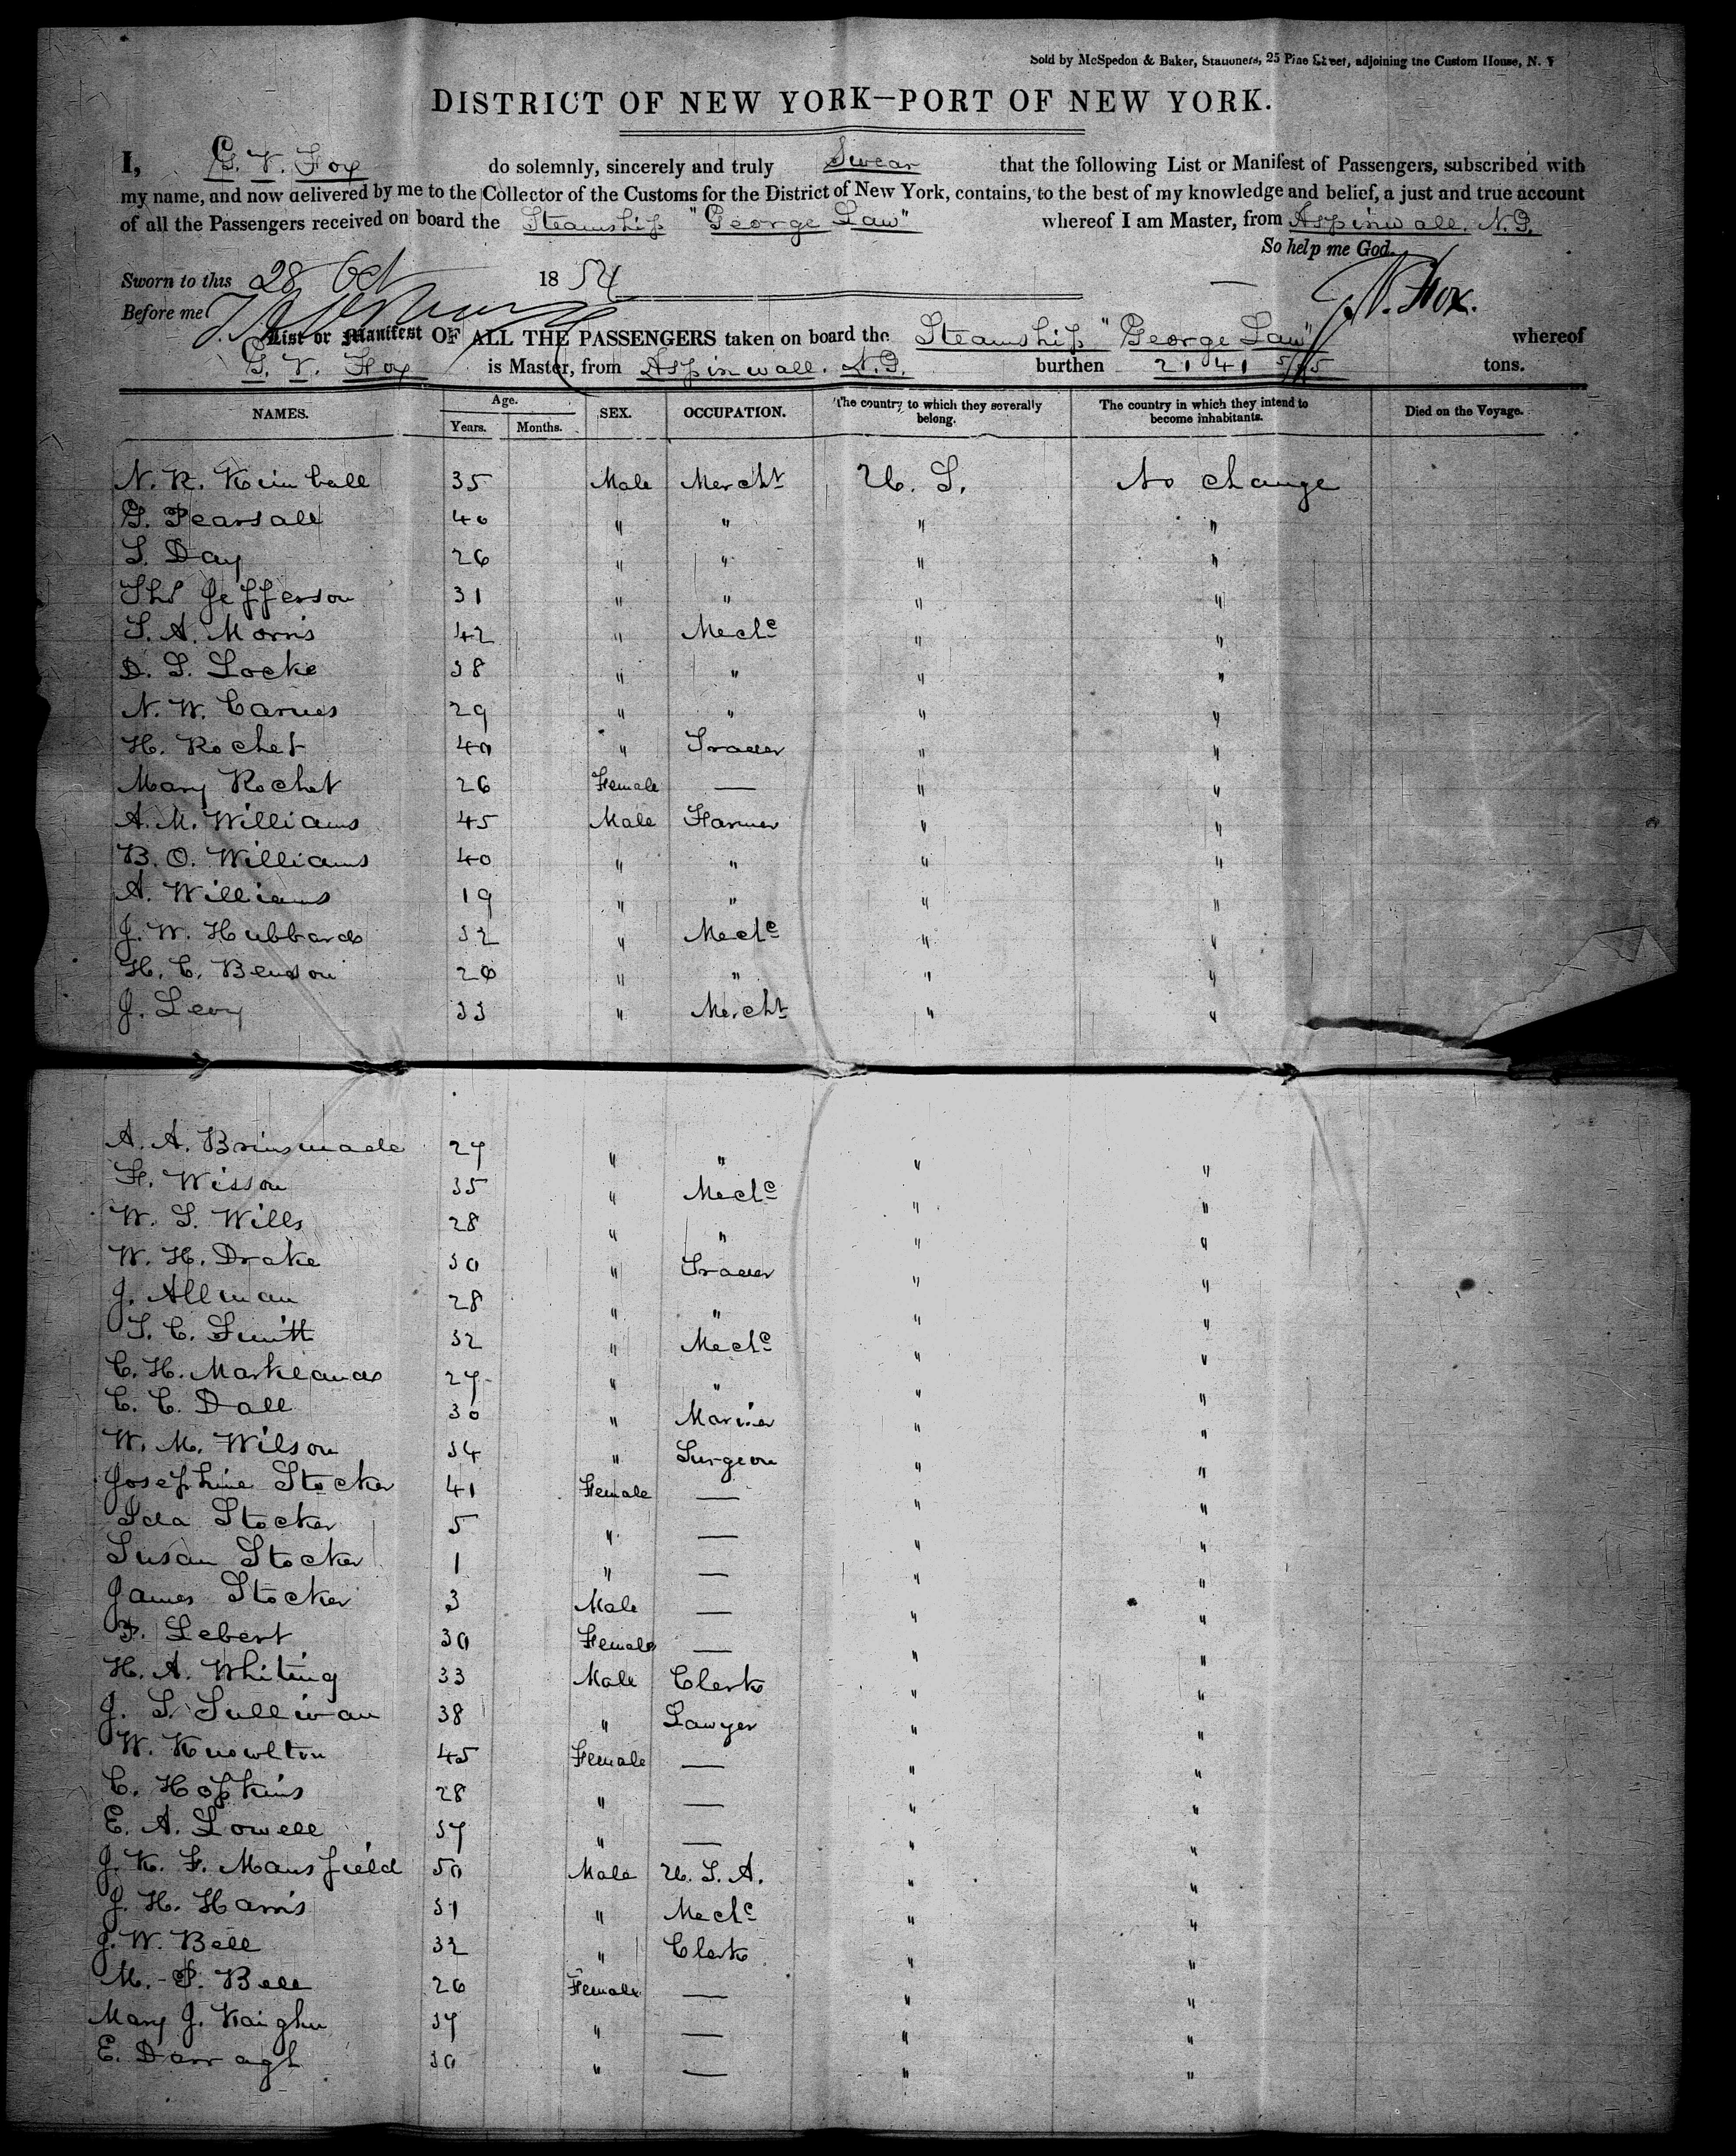 Sold by McSpedon & Baker, Stationers, 25 Pine Street, adjoining the Custom House, N. Y
DISTRICT OF NEW YORK—PORT OF NEW YORK.
I, G. V. Fox do solemnly, sincerely and truly Swear that the following List or Manifest of Passengers, subscribed with
my name, and now delivered by me to the Collector of the Customs for the District of New York, contains, to the best of my knowledge and belief, a just and true account
of all the Passengers received on board the Steamship "George Law" whereof I am Master, from Aspinwall. N.G.
So help me God.
Sworn to this 28 Oct 1854
Before me
G. V. Fox.
List or Manifest OF ALL THE PASSENGERS taken on board the Steamship "George Law" whereof
G. V. Fox is Master, from Aspinwall. N.G. burthen 2141 5/95 tons.
NAMES. Age. Years. Months. SEX. OCCUPATION. The country to which they severally belong. The country in which they intend to become inhabitants. Died on the Voyage.
N. R. Kimball 35 Male Mercht U. S. No change
G. Pearsall 40 " " " "
S. Day 26 " " " "
Ths Jefferson 31 " " " "
S. A. Morris 42 " Mechc " "
D. S. Locke 38 " " " "
N. W. Carnes 29 " " " "
H. Rochet 40 " Trader " "
Mary Rochet 26 Female — " "
A. M. Williams 45 Male Farmer " "
B. O. Williams 40 " " " "
A. Williams 19 " " " "
J. W. Hubbard 32 " Mechc " "
H. C. Benson 26 " " " "
J. Levy 33 " Mercht " "
A. A. Brinsmade 27 " " " "
F. Wisson 35 " Mechc " "
W. S. Wills 28 " " " "
W. H. Drake 30 " Trader " "
J. Allman 28 " " " "
S. C. Smith 32 " Mechc " "
C. H. Markland 27 " " " "
C. C. Dall 30 " Mariner " "
W. M. Wilson 34 " Surgeon " "
Josephine Stocker 41 Female — " "
Ida Stocker 5 " — " "
Susan Stocker 1 " — " "
James Stocker 3 Male — " "
F. Lebert 30 Female — " "
H. A. Whiting 33 Male Clerk " "
J. S. Sullivan 38 " Lawyer " "
W. Knowlton 45 Female — " "
C. Hopkins 28 " — " "
E. A. Lowell 37 " — " "
J. K. F. Mansfield 50 Male U. S. A. " "
J. H. Harris 31 " Mechc " "
J. W. Bell 32 " Clerk " "
M. P. Bell 26 Female — " "
Mary J. Kaighn 37 " — " "
E. Darragh 30 " — " "